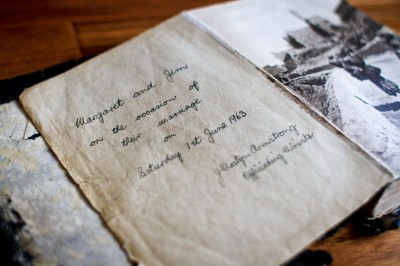 Margaret and Jim
on the occasion of
their marriage
on
Saturday 1st June 1963
Armstrong
Officiating Minister